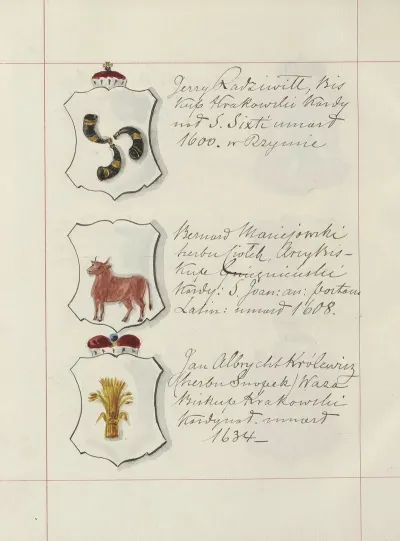 Jerzy Radziwiłł, Bis
kup Krakowski Kardy
nał S. Sixti umarł
1600. w Rzymie
Bernard Maciejowski
herbu Ciołek, Arcybis-
kup Gnieznieński
Kardy: S. Joan: an: portam
Latin: umarł 1608.
Jan Albrycht Królewicz
/herbu Snopek/ Waza
Biskup Krakowski
Kardynał. umarł
1634 –